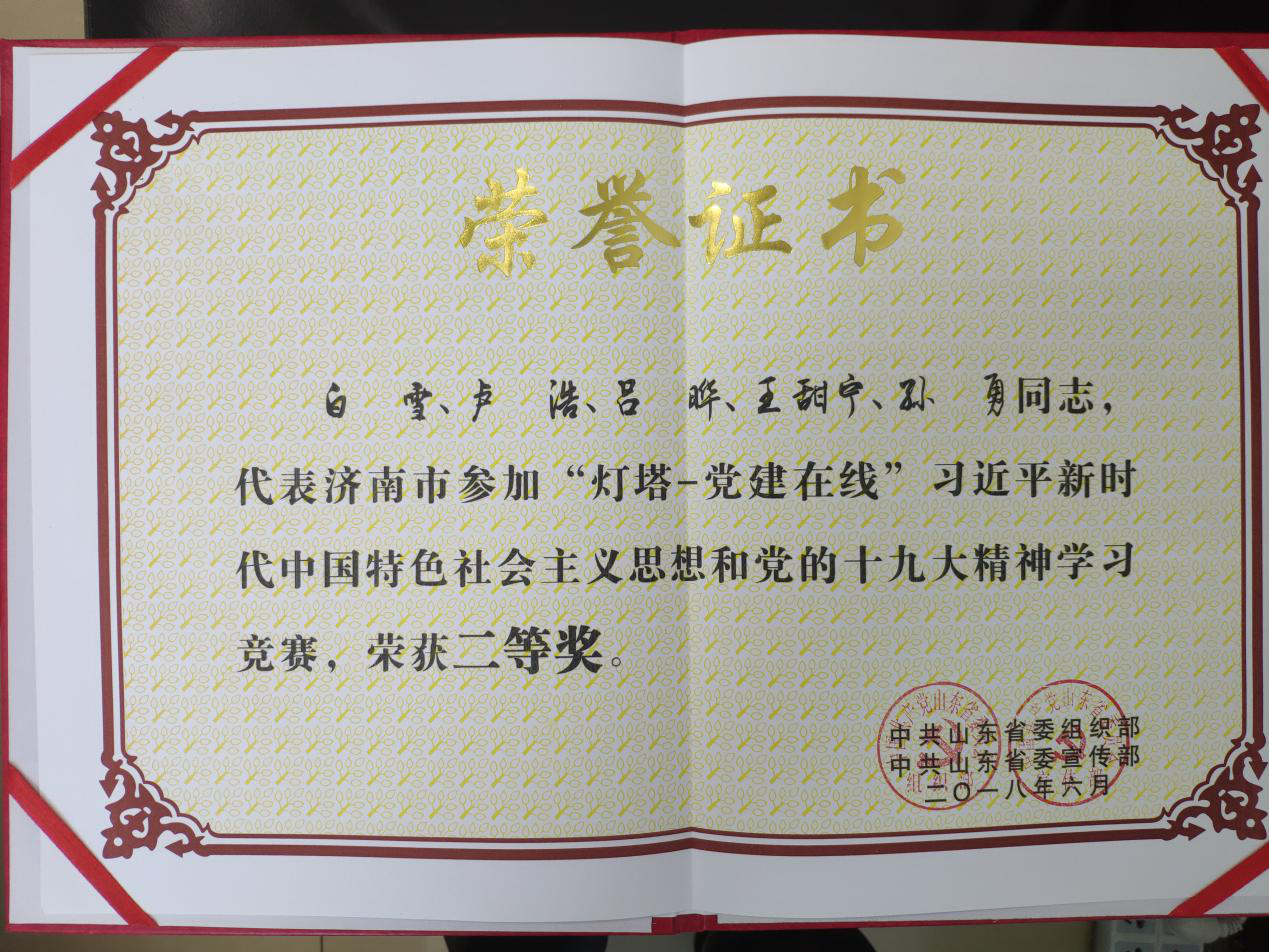 荣誉证书
白 雪、卢 浩、吕 晔、王甜宁、孙 勇同志，
代表济南市参加“灯塔-党建在线”习近平新时
代中国特色社会主义思想和党的十九大精神学习
竞赛，荣获二等奖。
中共山东省委组织部
中共山东省委宣传部
二〇一八年六月